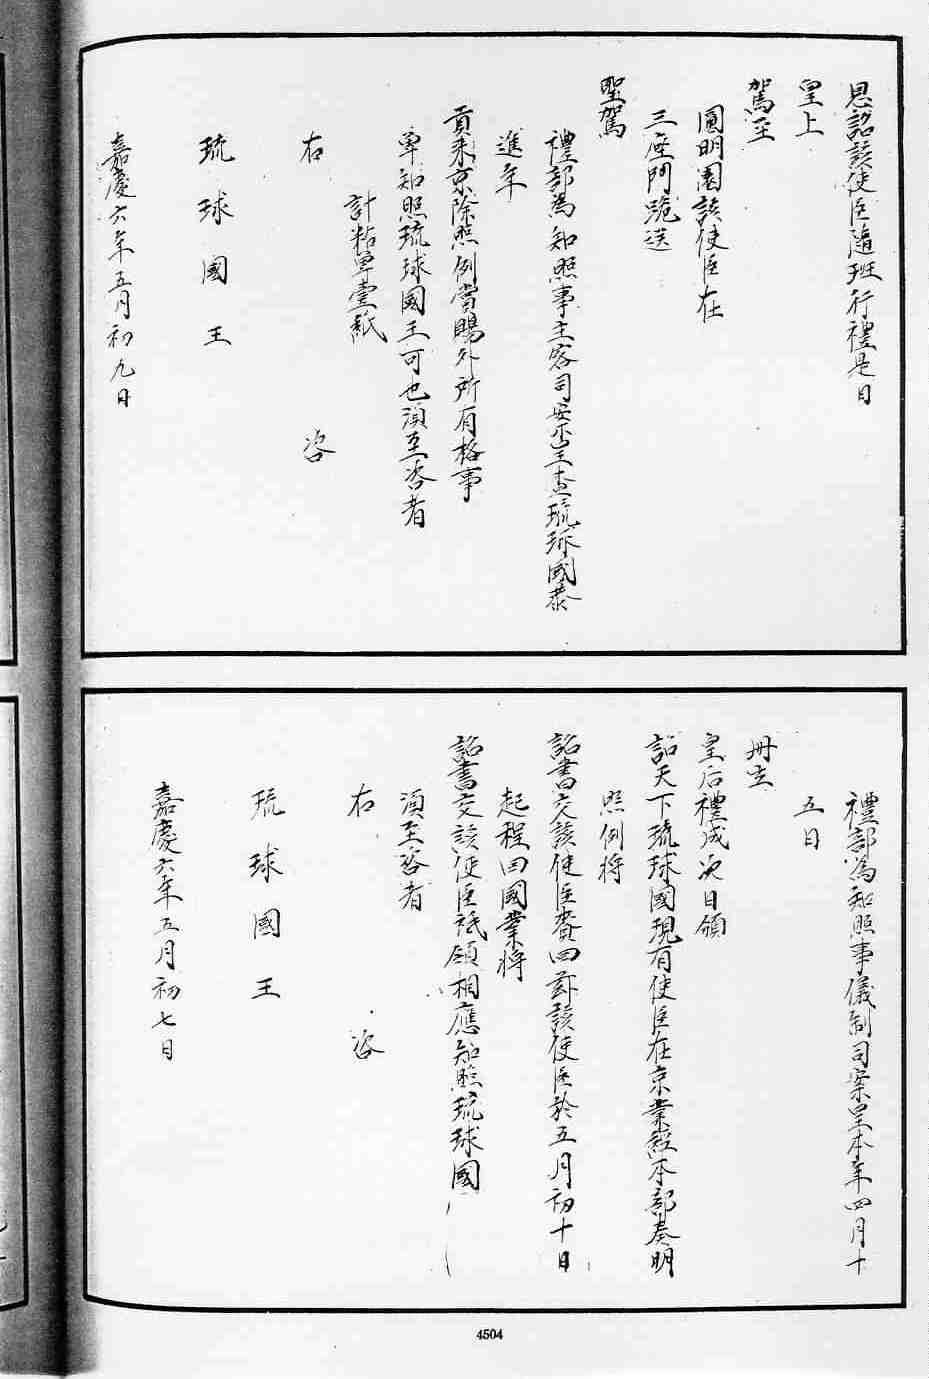 恩詔該使臣隨班行禮是日
皇上
駕至
圓明園該使臣在
三座門跪送
聖駕
禮部為知照事主客司案呈查琉球國恭
進年
貢來京除照例賞賜外所有格事
單知照琉球國王可也須至咨者
計粘單壹紙
右 咨
琉球國王
嘉慶六年五月初九日
禮部為知照事儀制司案呈本年四月十
五日
冊立
皇后禮成次日頒
詔天下琉球國現有使臣在京業經本部奏明
照例將
詔書交該使臣賫回茲該使臣於五月初十日
起程回國業將
詔書交該使臣祗領相應知照琉球國
須至咨者
右 咨
琉球國王
嘉慶六年五月初七日
4504